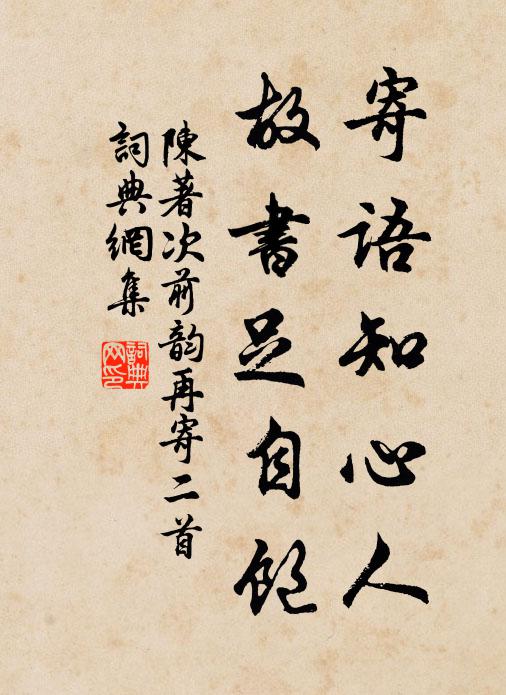 寄語知心人
故書足自飽
陳著次前韵再寄二首
詞典網集
詞典網印